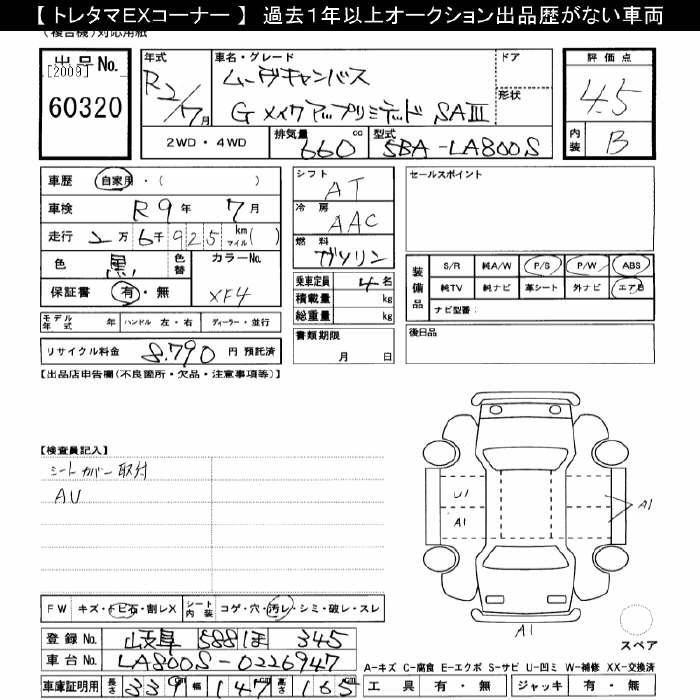 【 トレタマEXコーナー 】 過去1年以上オークション出品歴がない車両
(複合機)対応用紙
出品No.
[2009]
60320
年式
R2/7月
車名・グレード
ムーヴキャンバス
G メイクアップリミテッド SAⅢ
ドア
形状
2WD・4WD
排気量
660 cc
型式
5BA-LA800S
評価点
4.5
内装
B
車歴 自家用・( )
車検 R9年 7月
走行 2万6千925 km マイル( )
色 黒 色替
カラーNo.
XF4
保証書 有・無
モデル年式 年 ハンドル 左・右 ディーラー・並行
リサイクル料金 8,790 円 預託済
シフト
AT
冷房
AAC
燃料
ガソリン
乗車定員 4名
積載量 kg
総重量 kg
書類期限
月 日
セールスポイント
装備品
S/R 純A/W P/S P/W ABS
純TV 純ナビ 革シート 外ナビ エアB
ナビ型番:
後日品
【出品店申告欄(不良箇所・欠品・注意事項等)】
【検査員記入】
シートカバー取付
AU
U1
A1
A1
A1
スペア
FW キズ・トビ石・割レX シート内装 コゲ・穴・汚レ・シミ・破レ・スレ
登録No. 岐阜 588 ほ 345
車台No. LA800S-0226947
車庫証明用 長さ 339cm 幅 147cm 高さ 165cm
A-キズ C-腐食 E-エクボ S-サビ U-凹ミ W-補修 XX-交換済
工具 有・無 ジャッキ 有・無